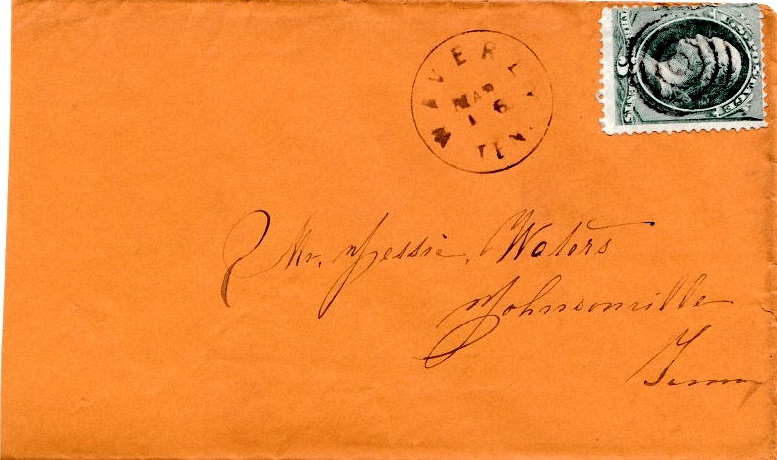 WAVERL
MAR
16
TEN.
Mr. Jessie Waters
Johnsonville
Tenn